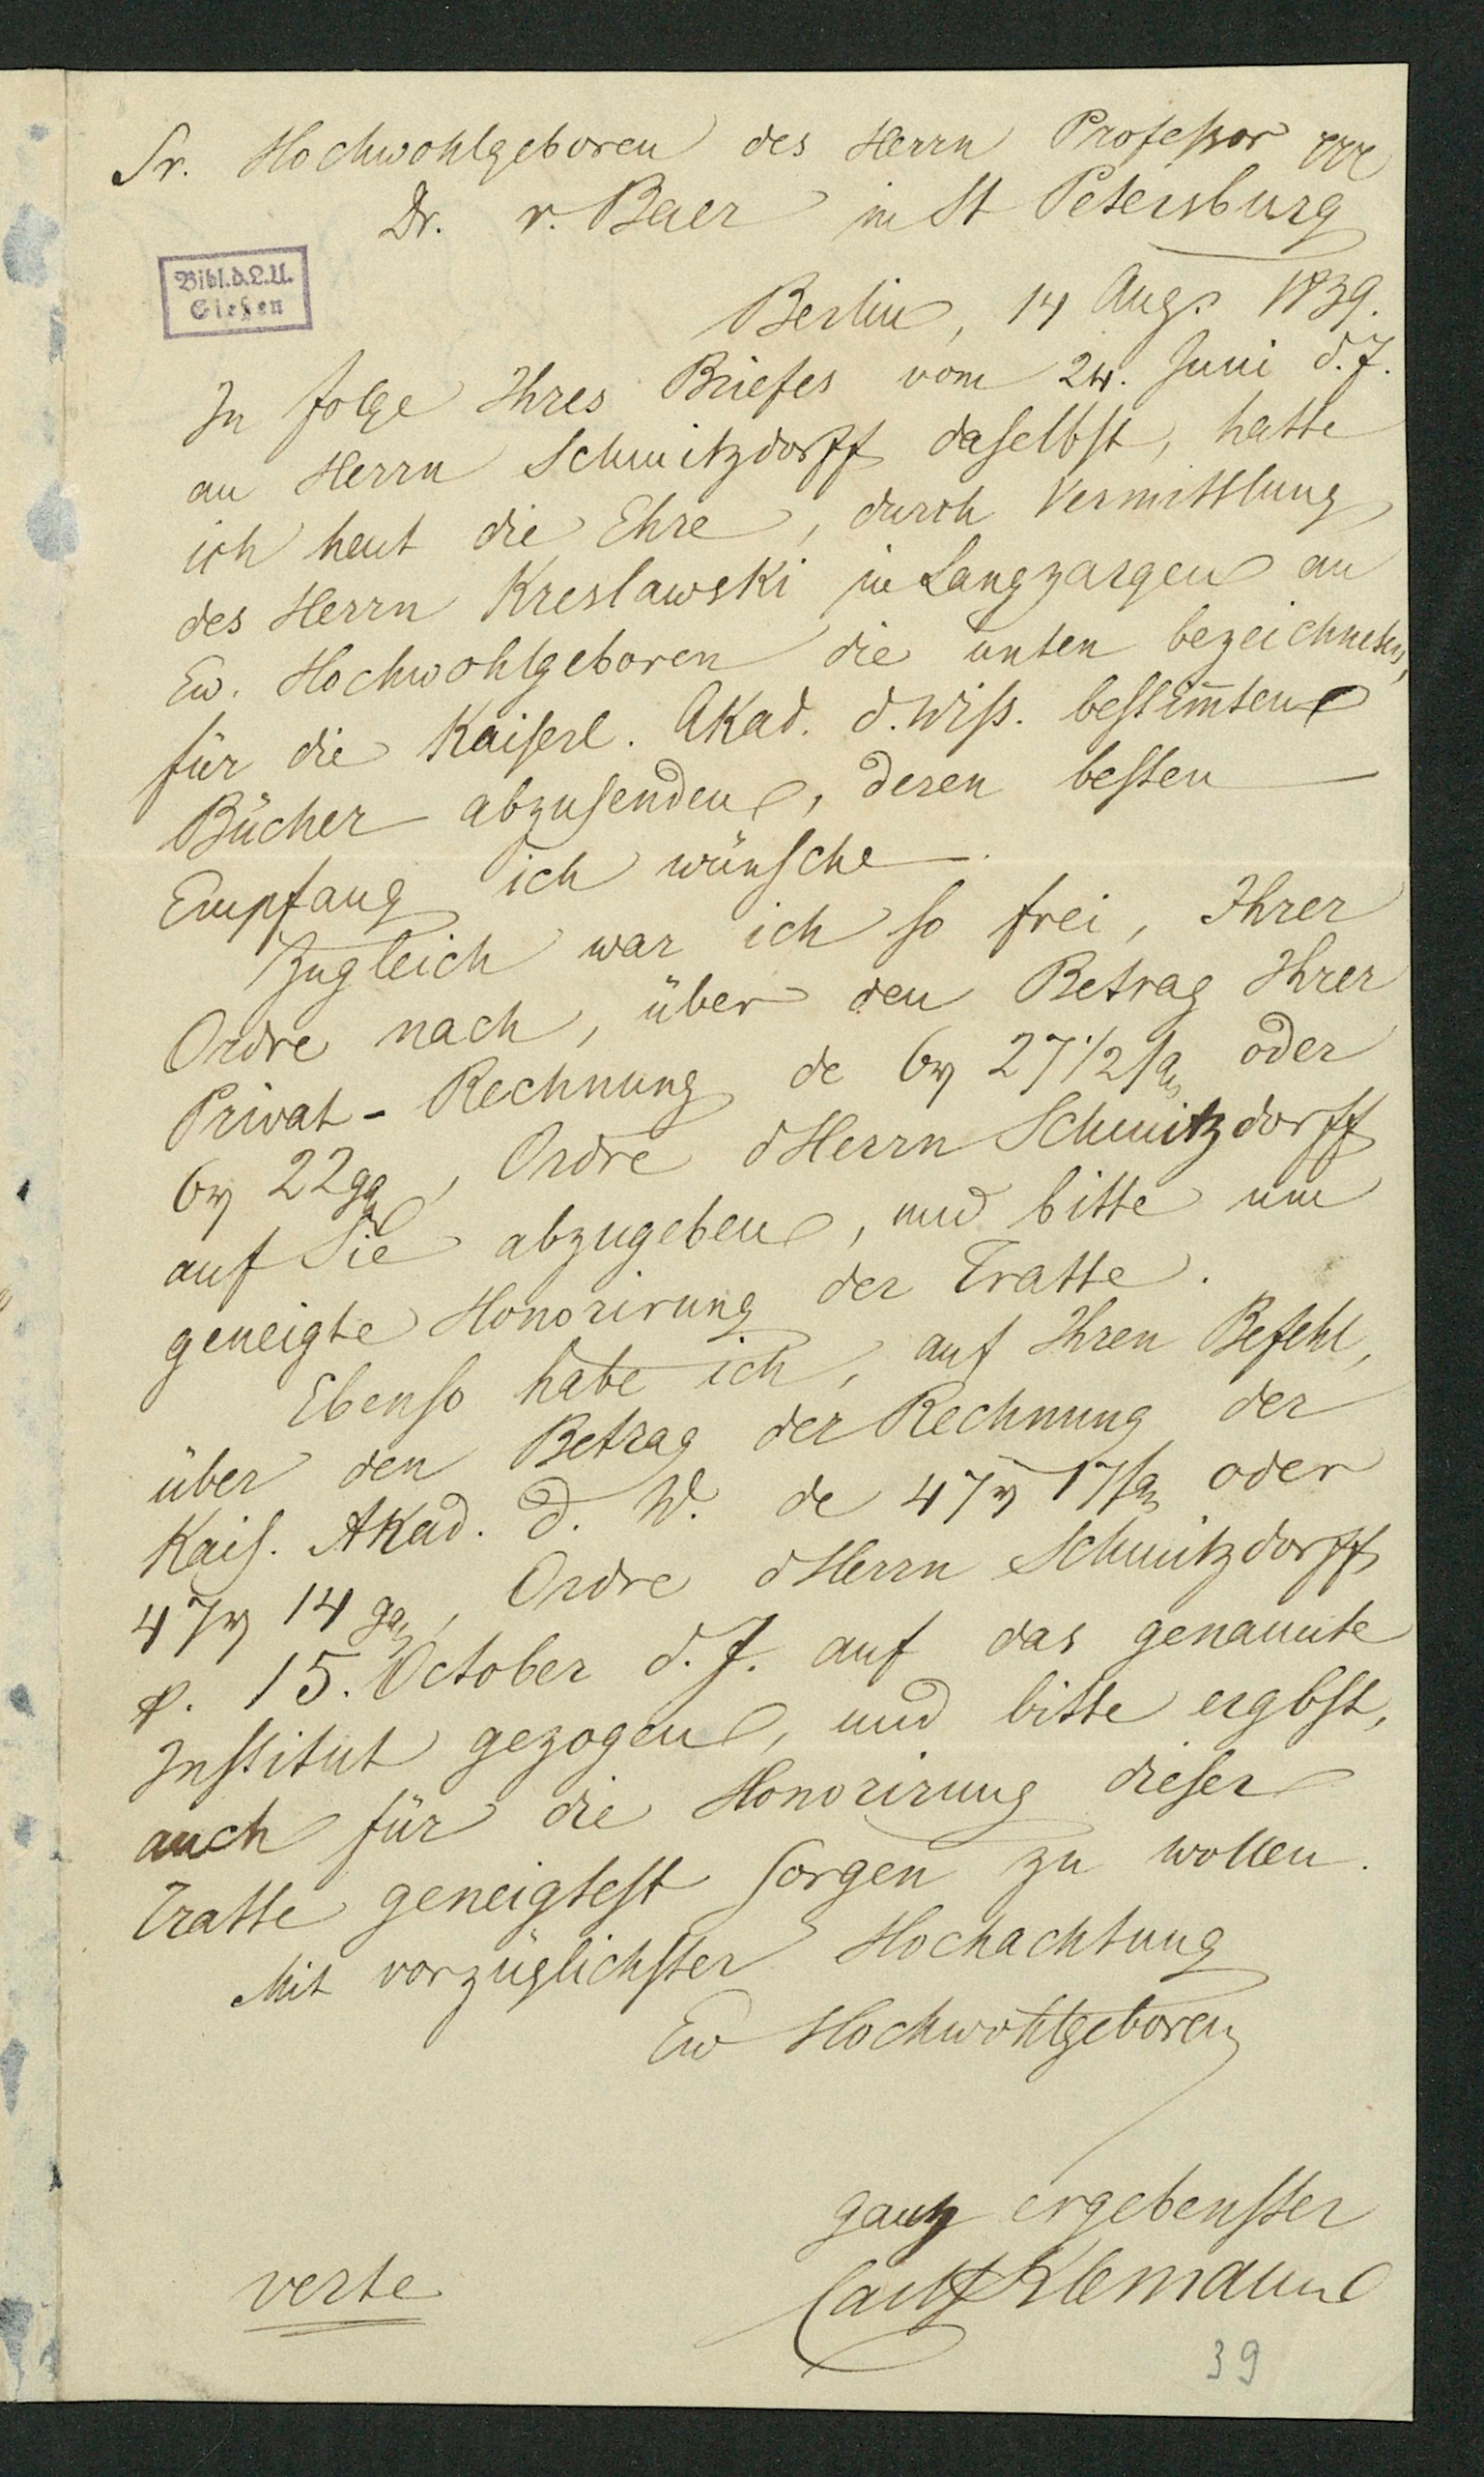 Sr. Hochwohlgeboren des Herrn Profeßor
Dr. v. Baer in St Petersburg
Bibl.d.L.U.
Gießen
Berlin, 14 Augs 1839.
In folge Ihres Briefes vom 24. Juni d.J.
an Herrn Schmitzdorff daselbst, hatte
ich heut die Ehre, durch Vermittlung
des Herrn Kreslawski in Langzargen an
Ew. Hochwohlgeboren die unten bezeichneten,
für die Kaiserl. Akad. d. Wiß. bestim̄ten
Bücher abzusenden, deren besten
Empfang ich wünsche.
Zugleich war ich so frei, Ihrer
Ordre nach, über den Betrag Ihrer
Privat-Rechnung de 6 rℓ 27 1/2 sg oder
6 rℓ 22 gg, Ordre d Herrn Schmitzdorff
auf Sie abzugeben, und bitte um
geneigte Honorirung der Tratte.
Ebenso habe ich, auf Ihren Befehl,
über den Betrag der Rechnung der
Kais. Akad. d. W. de 47 rℓ 17 sg oder
47 rℓ 14 gg, Ordre d Herrn Schmitzdorff
p. 15. October d.J. auf das genannte
Institut gezogen, und bitte ergbst,
auch für die Honorirung dieser
Tratte geneigtest sorgen zu wollen.
Mit vorzüglichster Hochachtung
Ew Hochwohlgeboren
ganz ergebenster
Carl Klemann
verte
39